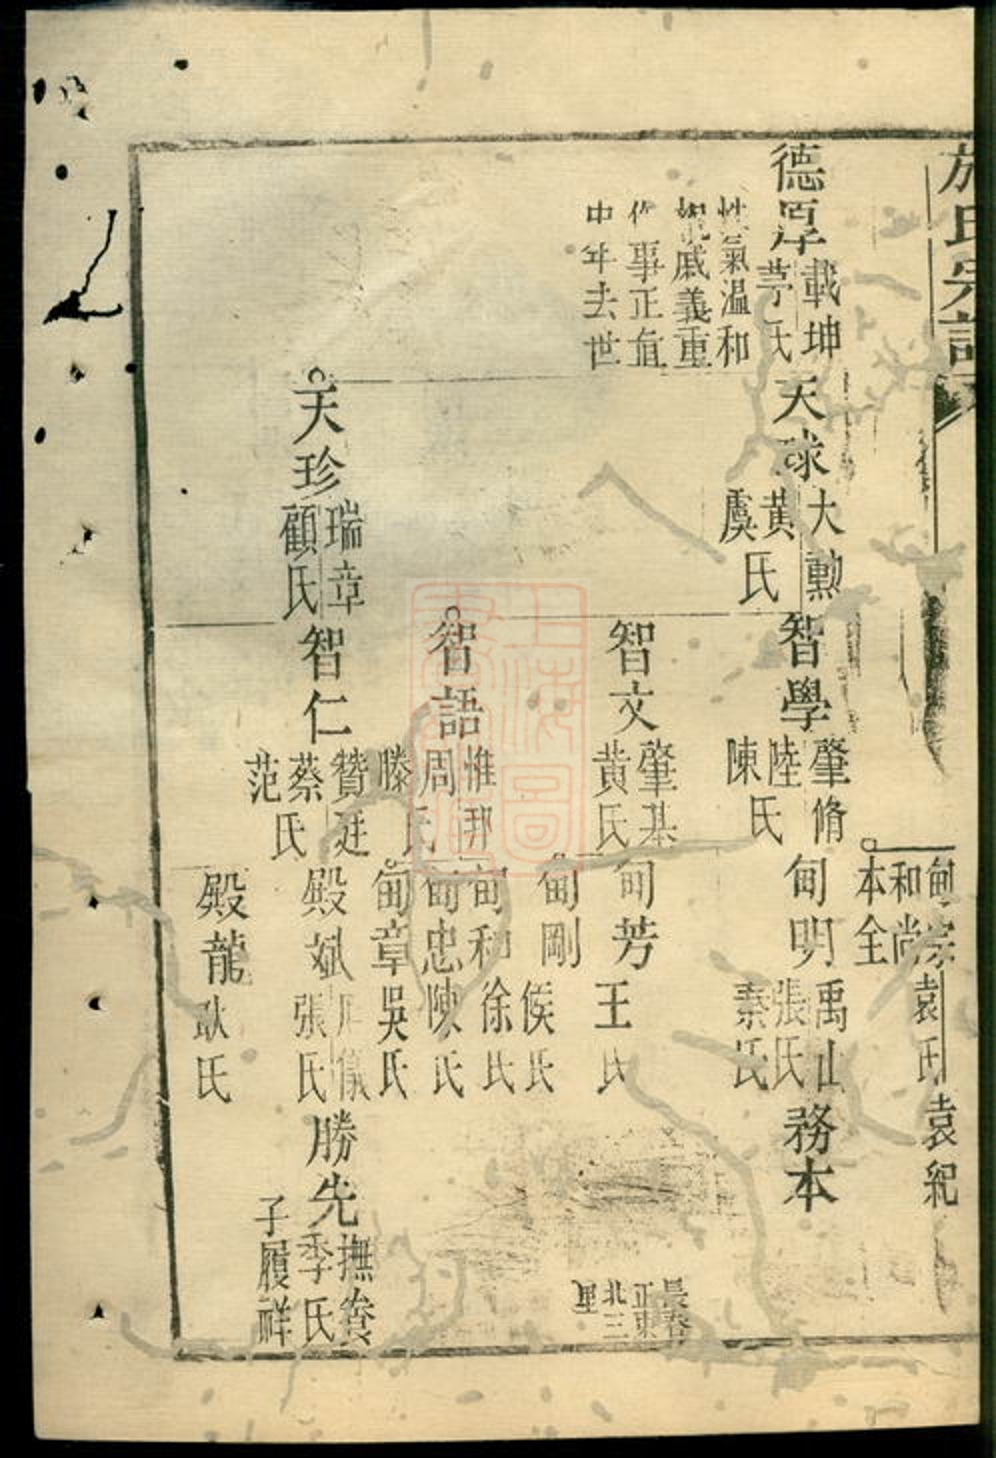 施氏宗譜
甸宗 袁氏 袁紀
和尚
本全
德厚 載坤 茅氏
性氣溫和
親戚義重
作事正值
中年去世
天球 大勲 黄 虞 氏
智學 肇脩 陸 陳 氏
甸明 禹山 張氏 秦氏
務本
智文 肇基 黄氏
甸芳 王氏
甸剛 侯氏
智語 惟 周 滕 氏
甸和 徐氏
甸忠 陳氏
甸章 吳氏
天珍 瑞章 顧氏
智仁 贊廷 蔡 范 氏
殿斌 張氏
勝先 撫賓 季氏 子履祥
殿龍 耿氏